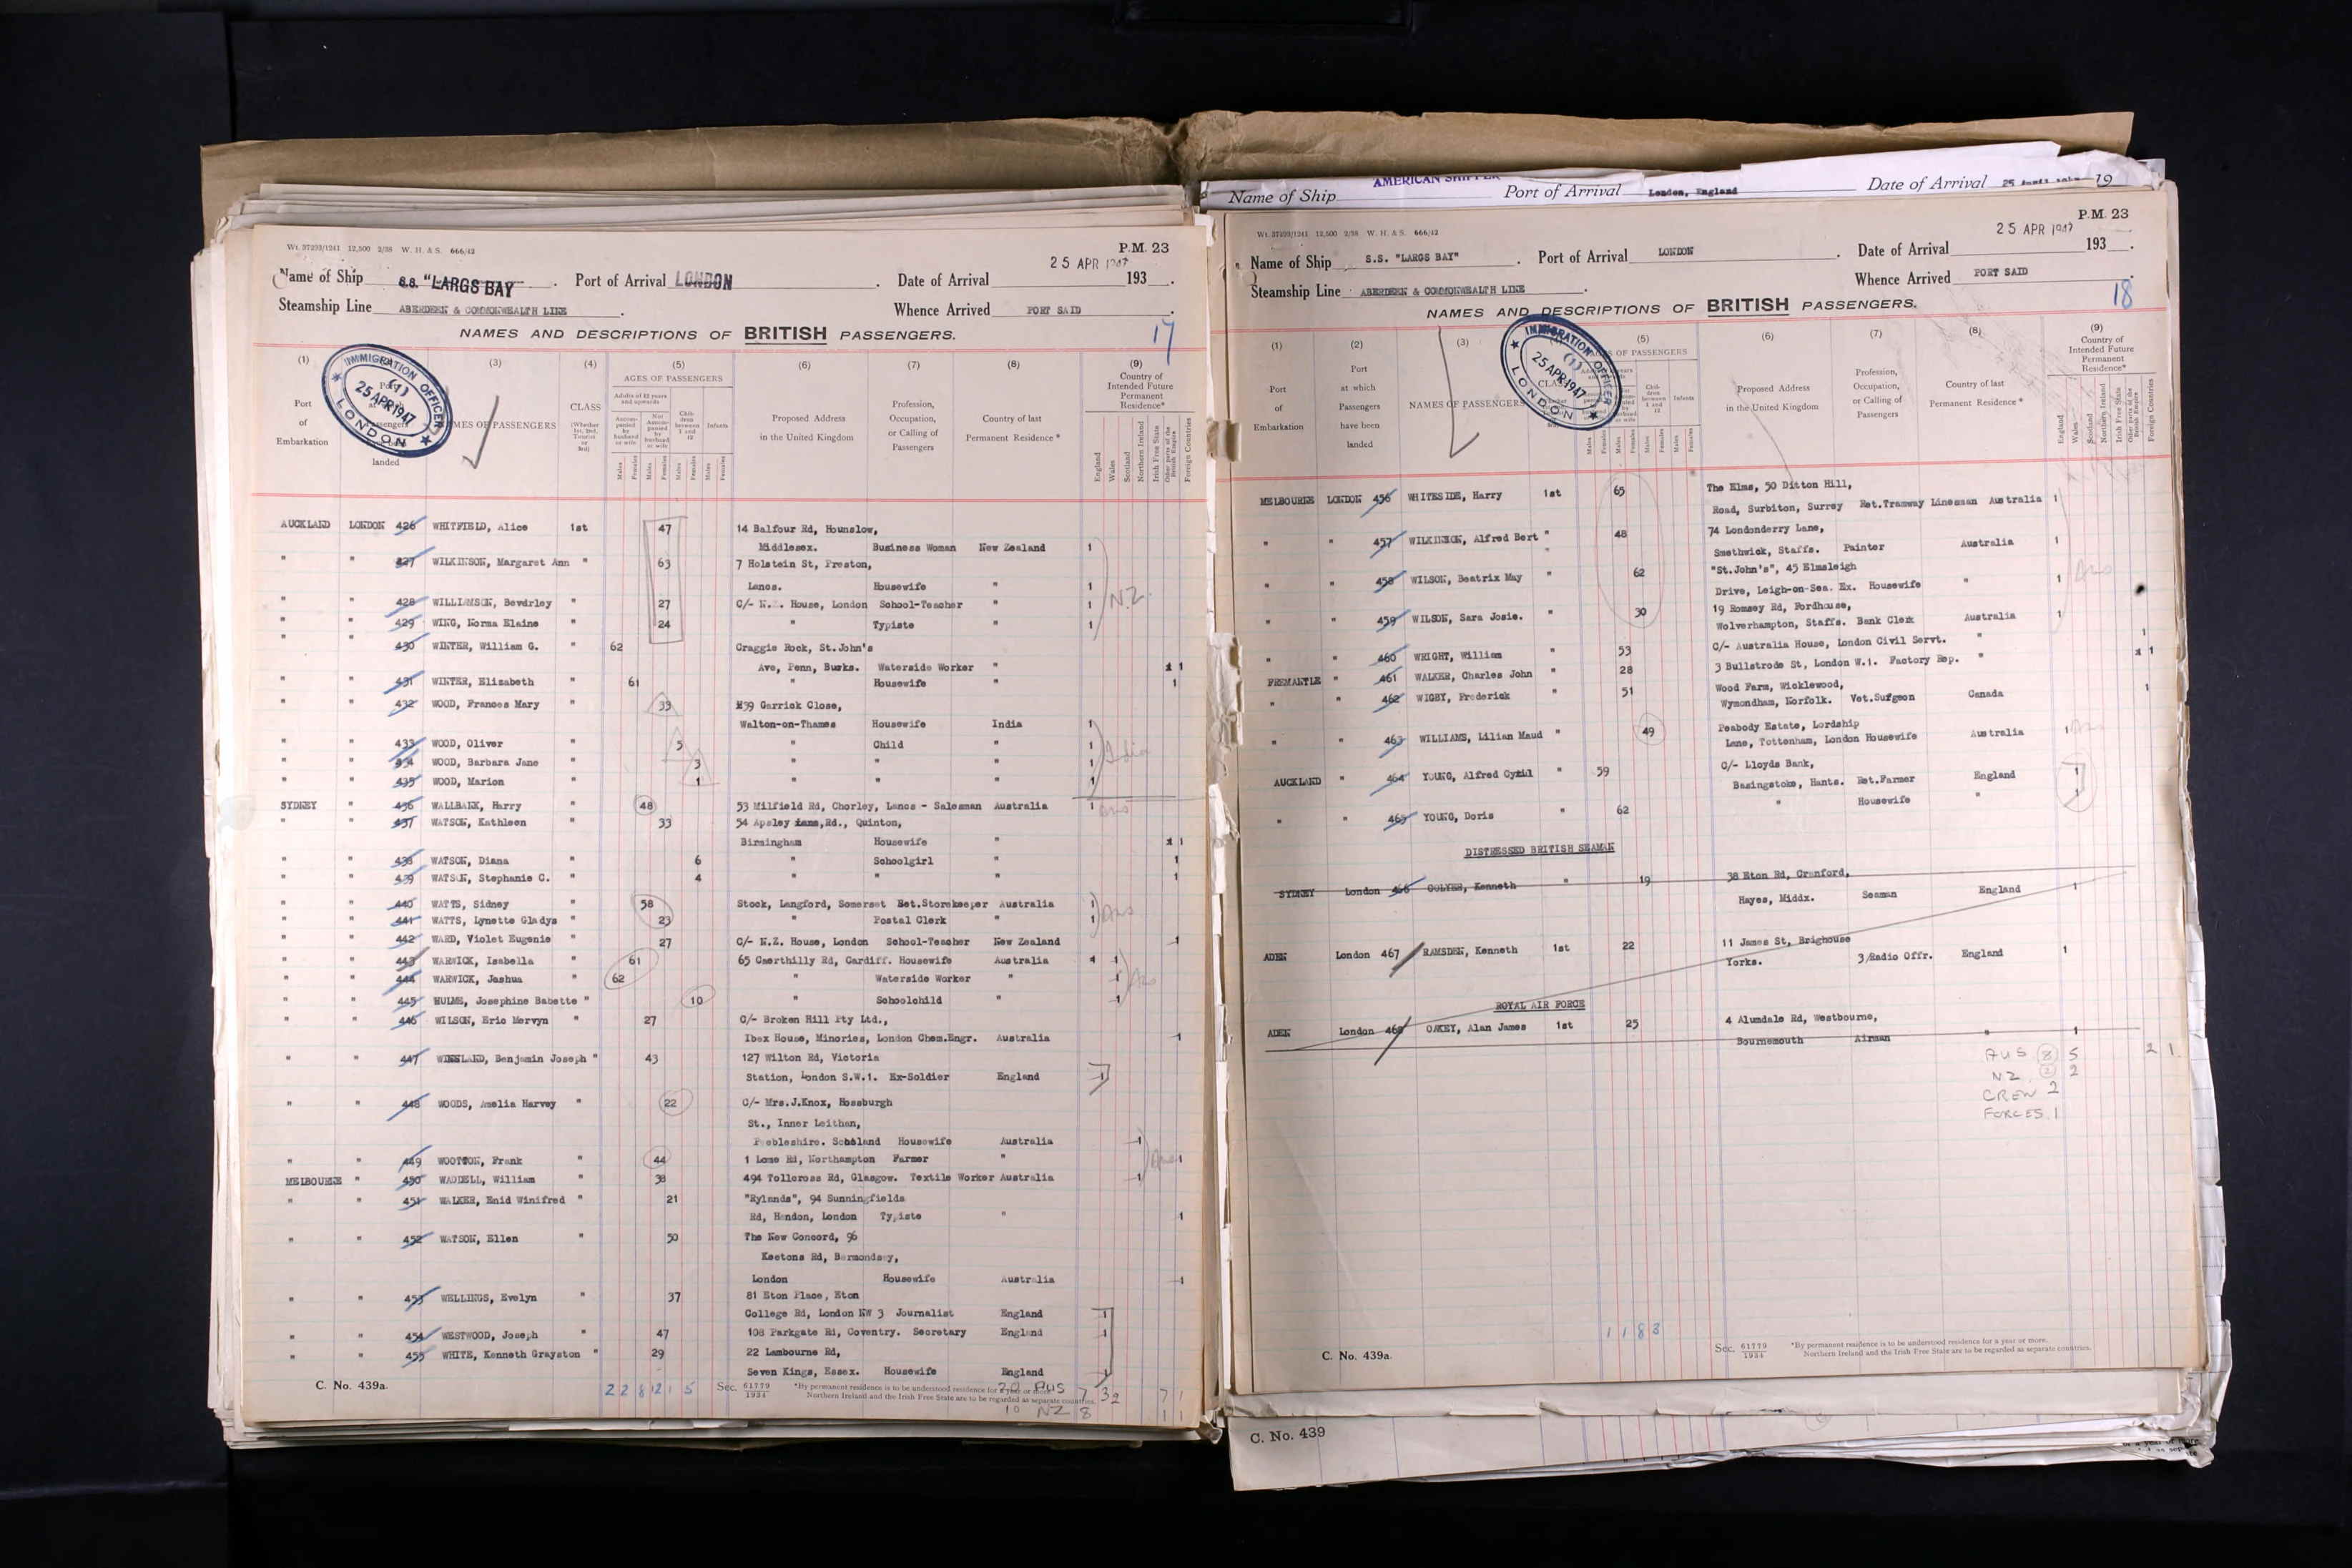 Wt. 37293/1241 12,500 2/38 W. H. & S. 666/12
P.M. 23
25 APR 1947
Name of Ship S.S. "LARGS BAY" . Port of Arrival LONDON . Date of Arrival 193 .
Steamship Line ABERDEEN & COMMONWEALTH LINE . Whence Arrived PORT SAID .
17
NAMES AND DESCRIPTIONS OF BRITISH PASSENGERS.
IMMIGRATION OFFICER (1) 25 APR 1947 LONDON
(1) (3) (4) (5) (6) (7) (8) (9)
Port of Embarkation
landed
NAMES OF PASSENGERS
CLASS (Whether 1st, 2nd, Tourist or 3rd)
AGES OF PASSENGERS
Adults of 12 years and upwards
Accompanied by husband or wife
Not Accompanied by husband or wife
Children between 1 and 12
Infants
Males Females Males Females Males Females Males Females
Proposed Address in the United Kingdom
Profession, Occupation, or Calling of Passengers
Country of last Permanent Residence *
Country of Intended Future Permanent Residence*
England Wales Scotland Northern Ireland Irish Free State Other parts of the British Empire Foreign Countries
AUCKLAND LONDON 426 WHITFIELD, Alice 1st 47 14 Balfour Rd, Hounslow,
Middlesex. Business Woman New Zealand 1
" " 427 WILKINSON, Margaret Ann " 63 7 Holstein St, Preston,
Lancs. Housewife " 1
" " 428 WILLIAMSON, Beverley " 27 C/- N.Z. House, London School-Teacher " 1 N.Z.
" " 429 WING, Norma Elaine " 24 " Typiste " 1
" " 430 WINTER, William G. " 62 Craggie Rock, St.John's
Ave, Penn, Bucks. Waterside Worker " 1
" " 431 WINTER, Elizabeth " 61 " Housewife 1
" " 432 WOOD, Frances Mary " 33 39 Garrick Close,
Walton-on-Thames Housewife India 1
" " 433 WOOD, Oliver " 5 " Child " 1 India
" " 434 WOOD, Barbara Jane " 3 " " " 1
" " 435 WOOD, Marion " 1 " " " 1
SYDNEY " 436 WALLBANK, Harry " 48 53 Milfield Rd, Chorley, Lancs - Salesman Australia 1 Aus
" " 437 WATSON, Kathleen " 33 54 Apsley Rd., Quinton,
Birmingham Housewife " 1
" " 438 WATSON, Diana " 6 " Schoolgirl " 1
" " 439 WATSON, Stephanie C. " 4 " " " 1
" " 440 WATTS, Sidney " 58 Stock, Langford, Somerset Ret.Storekeeper Australia 1 Aus
" " 441 WATTS, Lynette Gladys " 23 " Postal Clerk " 1
" " 442 WARD, Violet Eugenie " 27 C/- N.Z. House, London School-Teacher New Zealand 1
" " 443 WARWICK, Isabella " 61 65 Caerthilly Rd, Cardiff. Housewife Australia 1
" " 444 WARWICK, Jashua " 62 " Waterside Worker " 1 Aus
" " 445 HULME, Josephine Babette " 10 " Schoolchild " 1
" " 446 WILSON, Eric Mervyn " 27 C/- Broken Hill Pty Ltd.,
Ibex House, Minories, London Chem.Engr. Australia 1
" " 447 WINSLAND, Benjamin Joseph " 43 127 Wilton Rd, Victoria
Station, London S.W.1. Ex-Soldier England 1
" " 448 WOODS, Amelia Harvey " 22 C/- Mrs.J.Knox, Hossburgh
St., Inner Leithan,
Peebleshire. Scotland Housewife Australia 1
" " 449 WOOTTON, Frank " 44 1 Lome Rd, Northampton Farmer " 1
MELBOURNE " 450 WADDELL, William " 38 494 Tollcross Rd, Glasgow. Textile Worker Australia 1
" " 451 WALKER, Enid Winifred " 21 "Rylands", 94 Sunningfields
Rd, Hendon, London Typiste " 1
" " 452 WATSON, Ellen " 50 The New Concord, 96
Keetons Rd, Bermondsey,
London Housewife Australia 1
" " 453 WELLINGS, Evelyn " 37 81 Eton Place, Eton
College Rd, London NW 3 Journalist England 1
" " 454 WESTWOOD, Joseph " 47 108 Parkgate Rd, Coventry. Secretary England 1
" " 455 WHITE, Kenneth Grayston " 29 22 Lambourne Rd,
Seven Kings, Essex. Housewife England 1
C. No. 439a. 2 2 8 12 1 5 Sec. 61779/1934
*By permanent residence is to be understood residence for a year or more.
Northern Ireland and the Irish Free State are to be regarded as separate countries.
AUS 7 32 7
10 NZ 8 1
Name of Ship AMERICAN SHIPPER Port of Arrival London, England Date of Arrival 25 April 19
Wt. 37293/1241 12,500 2/38 W. H. & S. 666/12
P.M. 23
25 APR 1947
Name of Ship S.S. "LARGS BAY" . Port of Arrival LONDON . Date of Arrival 193 .
Steamship Line ABERDEEN & COMMONWEALTH LINE . Whence Arrived PORT SAID .
18
NAMES AND DESCRIPTIONS OF BRITISH PASSENGERS.
IMMIGRATION OFFICER (1) 25 APR 1947 LONDON
(1) (2) (3) (5) (6) (7) (8) (9)
Port of Embarkation
Port at which Passengers have been landed
NAMES OF PASSENGERS
OF PASSENGERS
Children between 1 and 12
Infants
Males Females Males Females Males Females Males Females
Proposed Address in the United Kingdom
Profession, Occupation, or Calling of Passengers
Country of last Permanent Residence *
Country of Intended Future Permanent Residence*
England Wales Scotland Northern Ireland Irish Free State Other parts of the British Empire Foreign Countries
MELBOURNE LONDON 456 WHITESIDE, Harry 1st 65 The Elms, 50 Ditton Hill,
Road, Surbiton, Surrey Ret.Tramway Linesman Australia 1
" " 457 WILKINSON, Alfred Bert " 48 74 Londonderry Lane,
Smethwick, Staffs. Painter Australia 1
" " 458 WILSON, Beatrix May " 62 "St.John's", 45 Elmsleigh
Drive, Leigh-on-Sea. Ex. Housewife " 1 Aus
" " 459 WILSON, Sara Josie. " 30 19 Romsey Rd, Fordhouse,
Wolverhampton, Staffs. Bank Clerk Australia 1
" " 460 WRIGHT, William " 53 C/- Australia House, London Civil Servt. " 1
FREMANTLE " 461 WALKER, Charles John " 28 3 Bullstrode St, London W.1. Factory Rep. " 1
" " 462 WIGBY, Frederick " 51 Wood Farm, Wicklewood,
Wymondham, Norfolk. Vet.Surgeon Canada 1
" " 463 WILLIAMS, Lilian Maud " 49 Peabody Estate, Lordship
Lane, Tottenham, London Housewife Australia 1 Aus
AUCKLAND " 464 YOUNG, Alfred Cyril " 59 C/- Lloyds Bank,
Basingstoke, Hants. Ret.Farmer England 1
" " 465 YOUNG, Doris " 62 " Housewife " 1
DISTRESSED BRITISH SEAMAN
SYDNEY London 466 COLYER, Kenneth " 19 38 Eton Rd, Cranford,
Hayes, Middx. Seaman England 1
ADEN London 467 RAMSDEN, Kenneth 1st 22 11 James St, Brighouse
Yorks. 3/Radio Offr. England 1
ROYAL AIR FORCE
ADEN London 468 OAKEY, Alan James 1st 25 4 Alumdale Rd, Westbourne,
Bournemouth Airman " 1
AUS 8 5 2 1
NZ 2 2
CREW 2
FORCES 1
1 1 8 3
C. No. 439a. Sec. 61779/1934
*By permanent residence is to be understood residence for a year or more.
Northern Ireland and the Irish Free State are to be regarded as separate countries.
C. No. 439